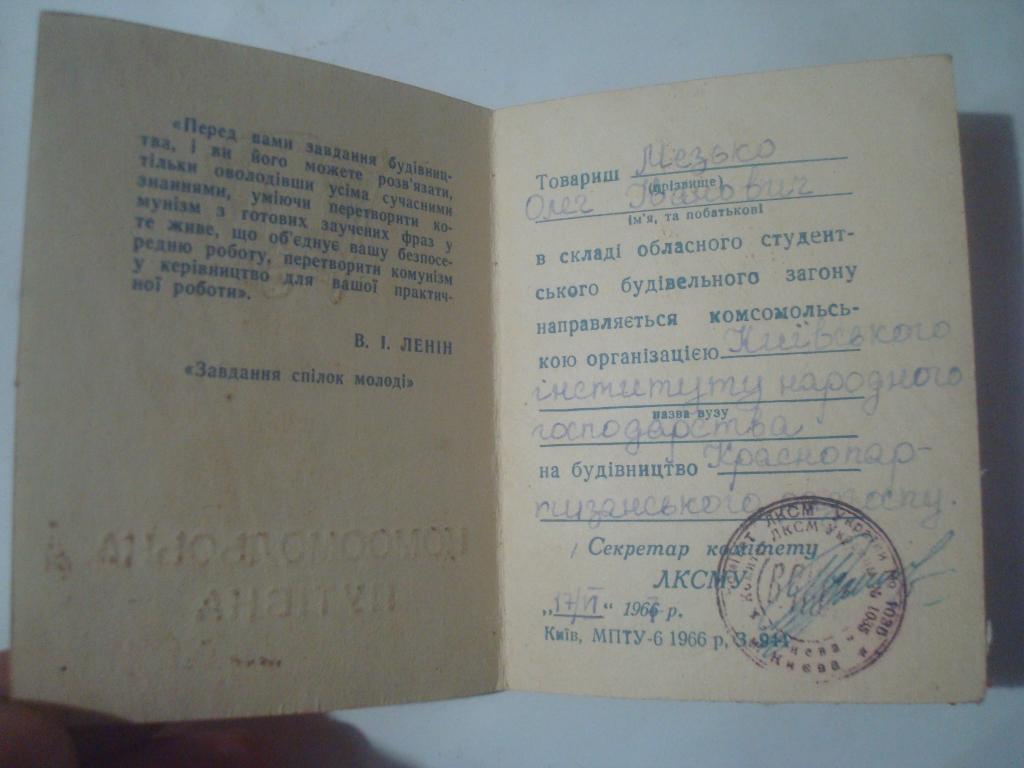 «Перед вами завдання будівниц-
тва, і ви його можете розв'язати,
тільки оволодівши усіма сучасними
знаннями, уміючи перетворити ко-
мунізм з готових заучених фраз у
те живе, що об'єднує вашу безпосе-
редню роботу, перетворити комунізм
у керівництво для вашої практич-
ної роботи».
В. І. ЛЕНІН
«Завдання спілок молоді»
КОМСОМОЛЬСЬКА
ПУТІВКА
Товариш Мезько
(прізвище)
Олег Іванович
ім'я, та побатькові
в складі обласного студент-
ського будівельного загону
направляється комсомольсь-
кою організацією Київського
інституту народного
назва вузу
господарства
на будівництво Краснопар-
тизанського радгоспу.
Секретар комітету
ЛКСМУ
„17/VI" 1967 р.
Київ, МПТУ-6 1966 р, З-944